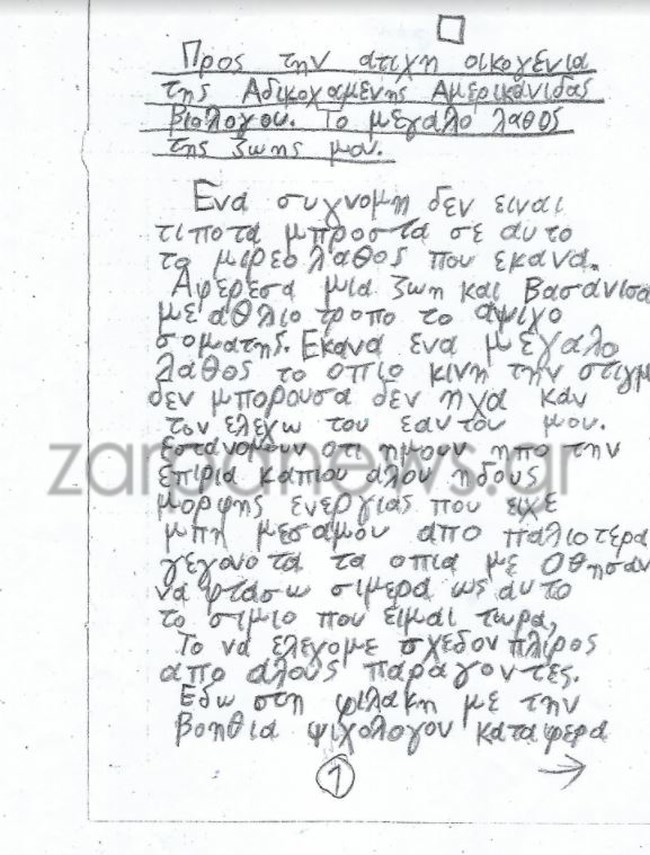 Προς την ατιχη οικογένια
της Αδικοχαμένης Αμερικάνιδας
βιολογου. Το μεγαλο λαθος
της ζωης μου.
Ενα συγνομη δεν ειναι
τιποτα μπροστα σε αυτο
το μιρεο λαθος που εκανα.
Αφερεσα μια ζωη και Βασανισα
με αθλιο τροπο το αψιχο
σοματης. Εκανα ενα μεγαλο
λαθος το οπιο κινη την στιγμ
δεν μπορουσα δεν ηχα καν
τον ελεχω του εαυτου μου.
εστανομουν οτι ημουν ηπο την
επιρια καπιου αλου ηδους
μορφης ενεργιας που ειχε
μπη μεσαμου απο παλιοτερα
γεγονοτα τα οπια με Οθησαν
να φτασω σιμερα ως αυτο
το σιμιο που ειμαι τωρα,
Το να ελεγομε σχεδον πλιρος
απο αλους παραγοντες.
Εδω στη φιλακη με την
βοηθια ψιχολογου καταφερα
1 →
zarpanews.gr